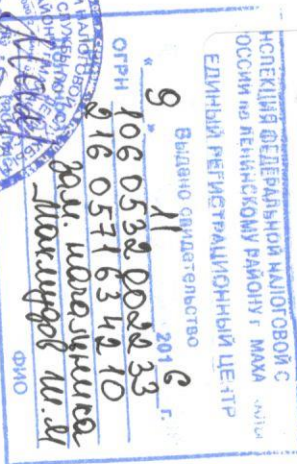 НСПЕКЦИЯ ФЕДЕРАЛЬНОЙ НАЛОГОВОЙ С
ОССИИ по ЛЕНИНСКОМУ РАЙОНУ г. МАХА
ЕДИНЫЙ РЕГИСТРАЦИОННЫЙ ЦЕНТР
Выдано свидетельство
« 9 » 11 2016 г.
ОГРН 1060532002233
2160571634210
зам. начальника
Махмудов Ш.М
ФИО